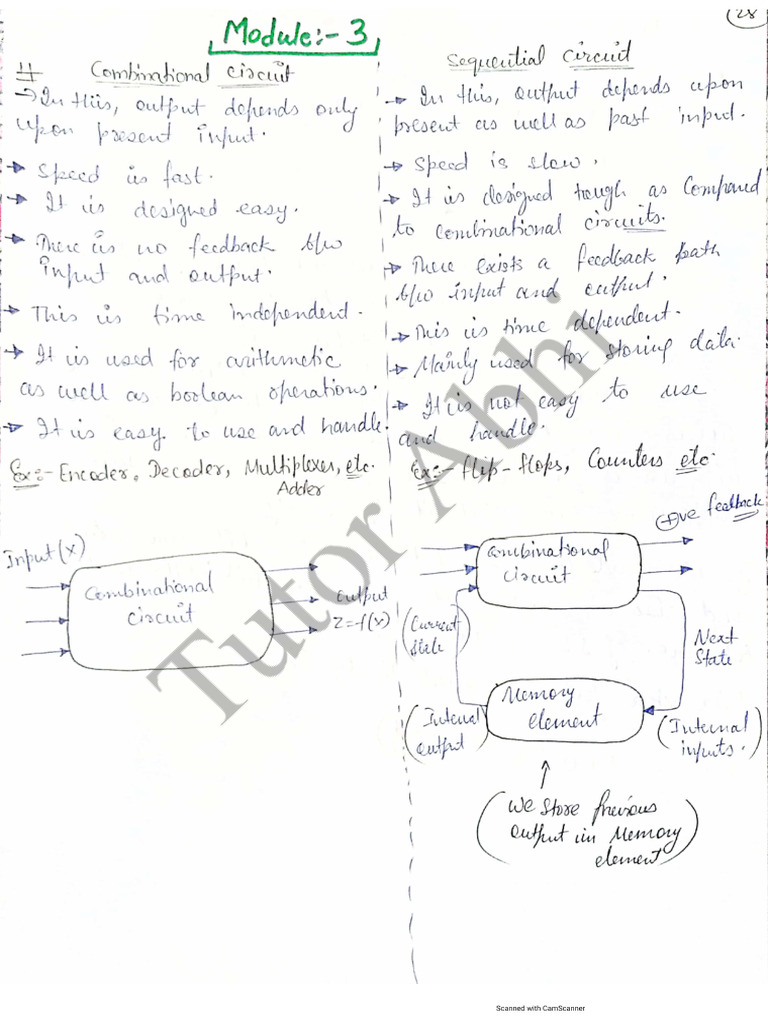 28
Module:- 3
# Combinational circuit
→ In this, output depends only
upon present input.
→ Speed is fast.
→ It is designed easy.
→ There is no feedback b/w
input and output.
→ This is time independent.
→ It is used for arithmetic
as well as boolean operations.
→ It is easy to use and handle.
Ex:- Encoder, Decoder, Multiplexer, etc.
Adder
Input(x)
Combinational
circuit
Output
Z=f(x)
Sequential circuit
→ In this, output depends upon
present as well as past input.
→ Speed is slow.
→ It is designed tough as compared
to combinational circuits.
→ There exists a feedback path
b/w input and output.
→ This is time dependent.
→ Mainly used for storing data.
→ It is not easy to use
and handle.
Ex:- flip-flops, Counters etc.
(+)ve feedback
Combinational
circuit
(Current
state)
Next
State
Memory
element
(Internal
output)
(Internal
inputs.)
(We store previous
output in Memory
element)
Tutor Abhi
Scanned with CamScanner